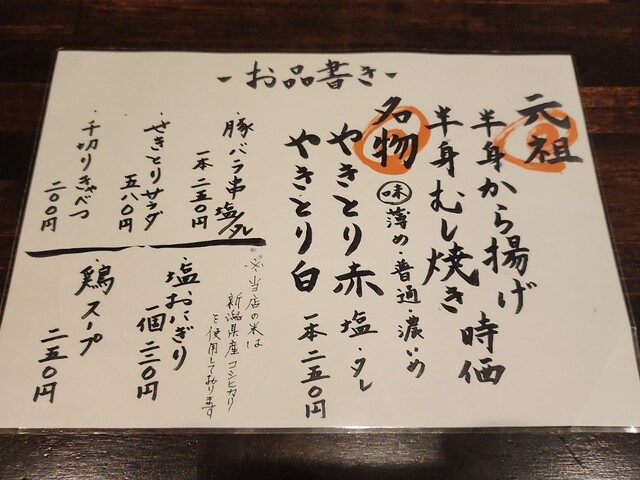 -お品書き-
元祖
半身から揚げ 時価
半身むし焼き
名物
味 薄め・普通・濃いめ
やきとり赤 塩・タレ
やきとり白 一本 二五〇円
豚バラ串 塩/タレ
一本 二五〇円
・やきとりサラダ
五八〇円
・千切りきゃべつ
二〇〇円
※当店の米は
新潟県産コシヒカリ
を使用しております
・塩おにぎり
一個 二二〇円
・鶏スープ
二五〇円